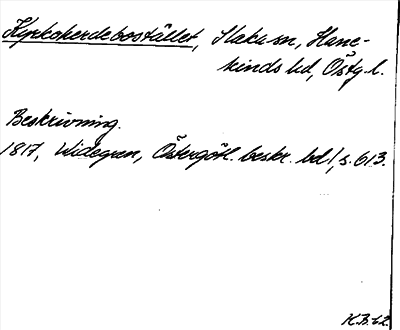 Kyrkoherdebostället, Slaka sn, Hane-
kinds hd, Östg. l.
Beskrivning.
1817, Widegren, Östergötl. beskr. bd 1, s. 613.
K.B. 62